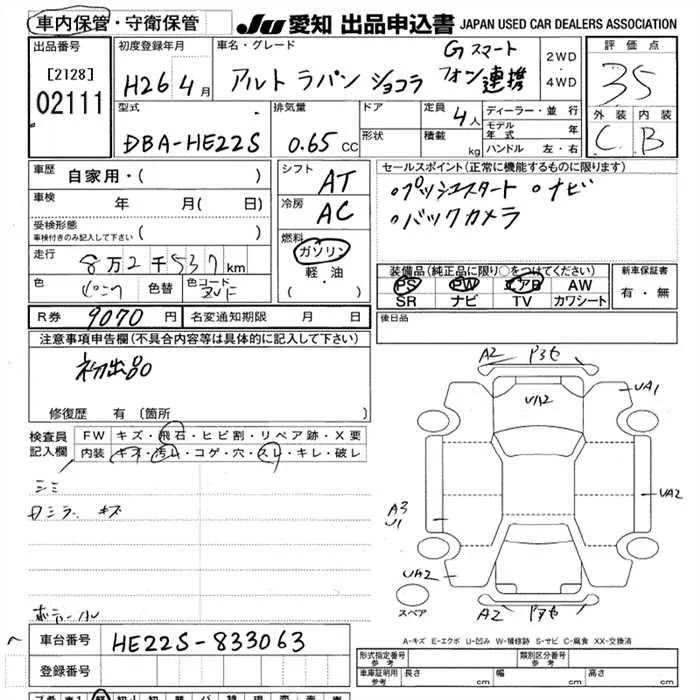 車内保管・守衛保管
JU 愛知 出品申込書 JAPAN USED CAR DEALERS ASSOCIATION
出品番号
[2128]
02111
初度登録年月
H26 4月
車名・グレード
アルト ラパン ショコラ
Gスマート
フォン連携
2WD
・
4WD
評価点
35
外装 内装
C B
型式
DBA-HE22S
排気量
0.65 CC
ドア
形状
定員 4人
積載 kg
ディーラー・並行
モデル年式 年
ハンドル 左・右
車歴
自家用・( )
車検
年 月( 日)
受検形態
車検付きのみ記入して下さい ( )
走行
8万2千537km
色 ピンク 色替 色コード ZVF
シフト
AT
冷房
AC
燃料
ガソリン
軽・油
( ・ )
セールスポイント(正常に機能するものに限ります)
・プッシュスタート ・ナビ
・バックカメラ
装備品(純正品に限り○をつけてください)
PS PW エアB AW
SR ナビ TV カワシート
新車保証書
有・無
R券 9070円 名変通知期限 月 日
後日品
注意事項申告欄(不具合内容等は具体的に記入して下さい)
初出品
修復歴 有 (箇所 )
検査員
記入欄
FW キズ・飛石・ヒビ割・リペア跡・X要
内装 キズ・汚レ・コゲ・穴・スレ・キレ・破レ
シミ
A2
UA2
UA1
UA2
A3
U1
UA2
A2
スペア
A-キズ E-エクボ U-凹み W-補修跡 S-サビ C-腐食 XX-交換済
車台番号 HE22S-833063
登録番号
形式指定番号
参考
類別区分番号
参考
車庫証明用
参考
長さ cm 幅 cm 高さ cm